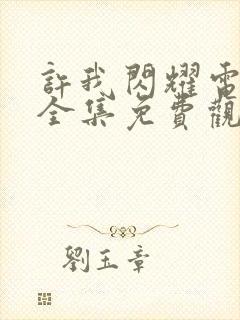 許我閃耀電
全集免費觀
劉玉章